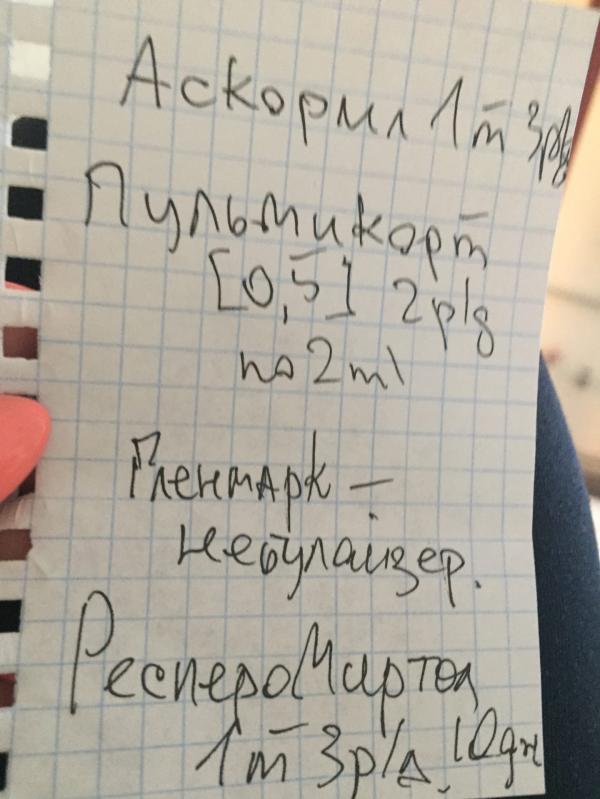 Аскорил 1т 3р/д
Пульмикорт
[0,5] 2р/д
по 2ml
Гленмарк –
небулайзер.
РеспероМиртол
1т 3р/д. 10дн